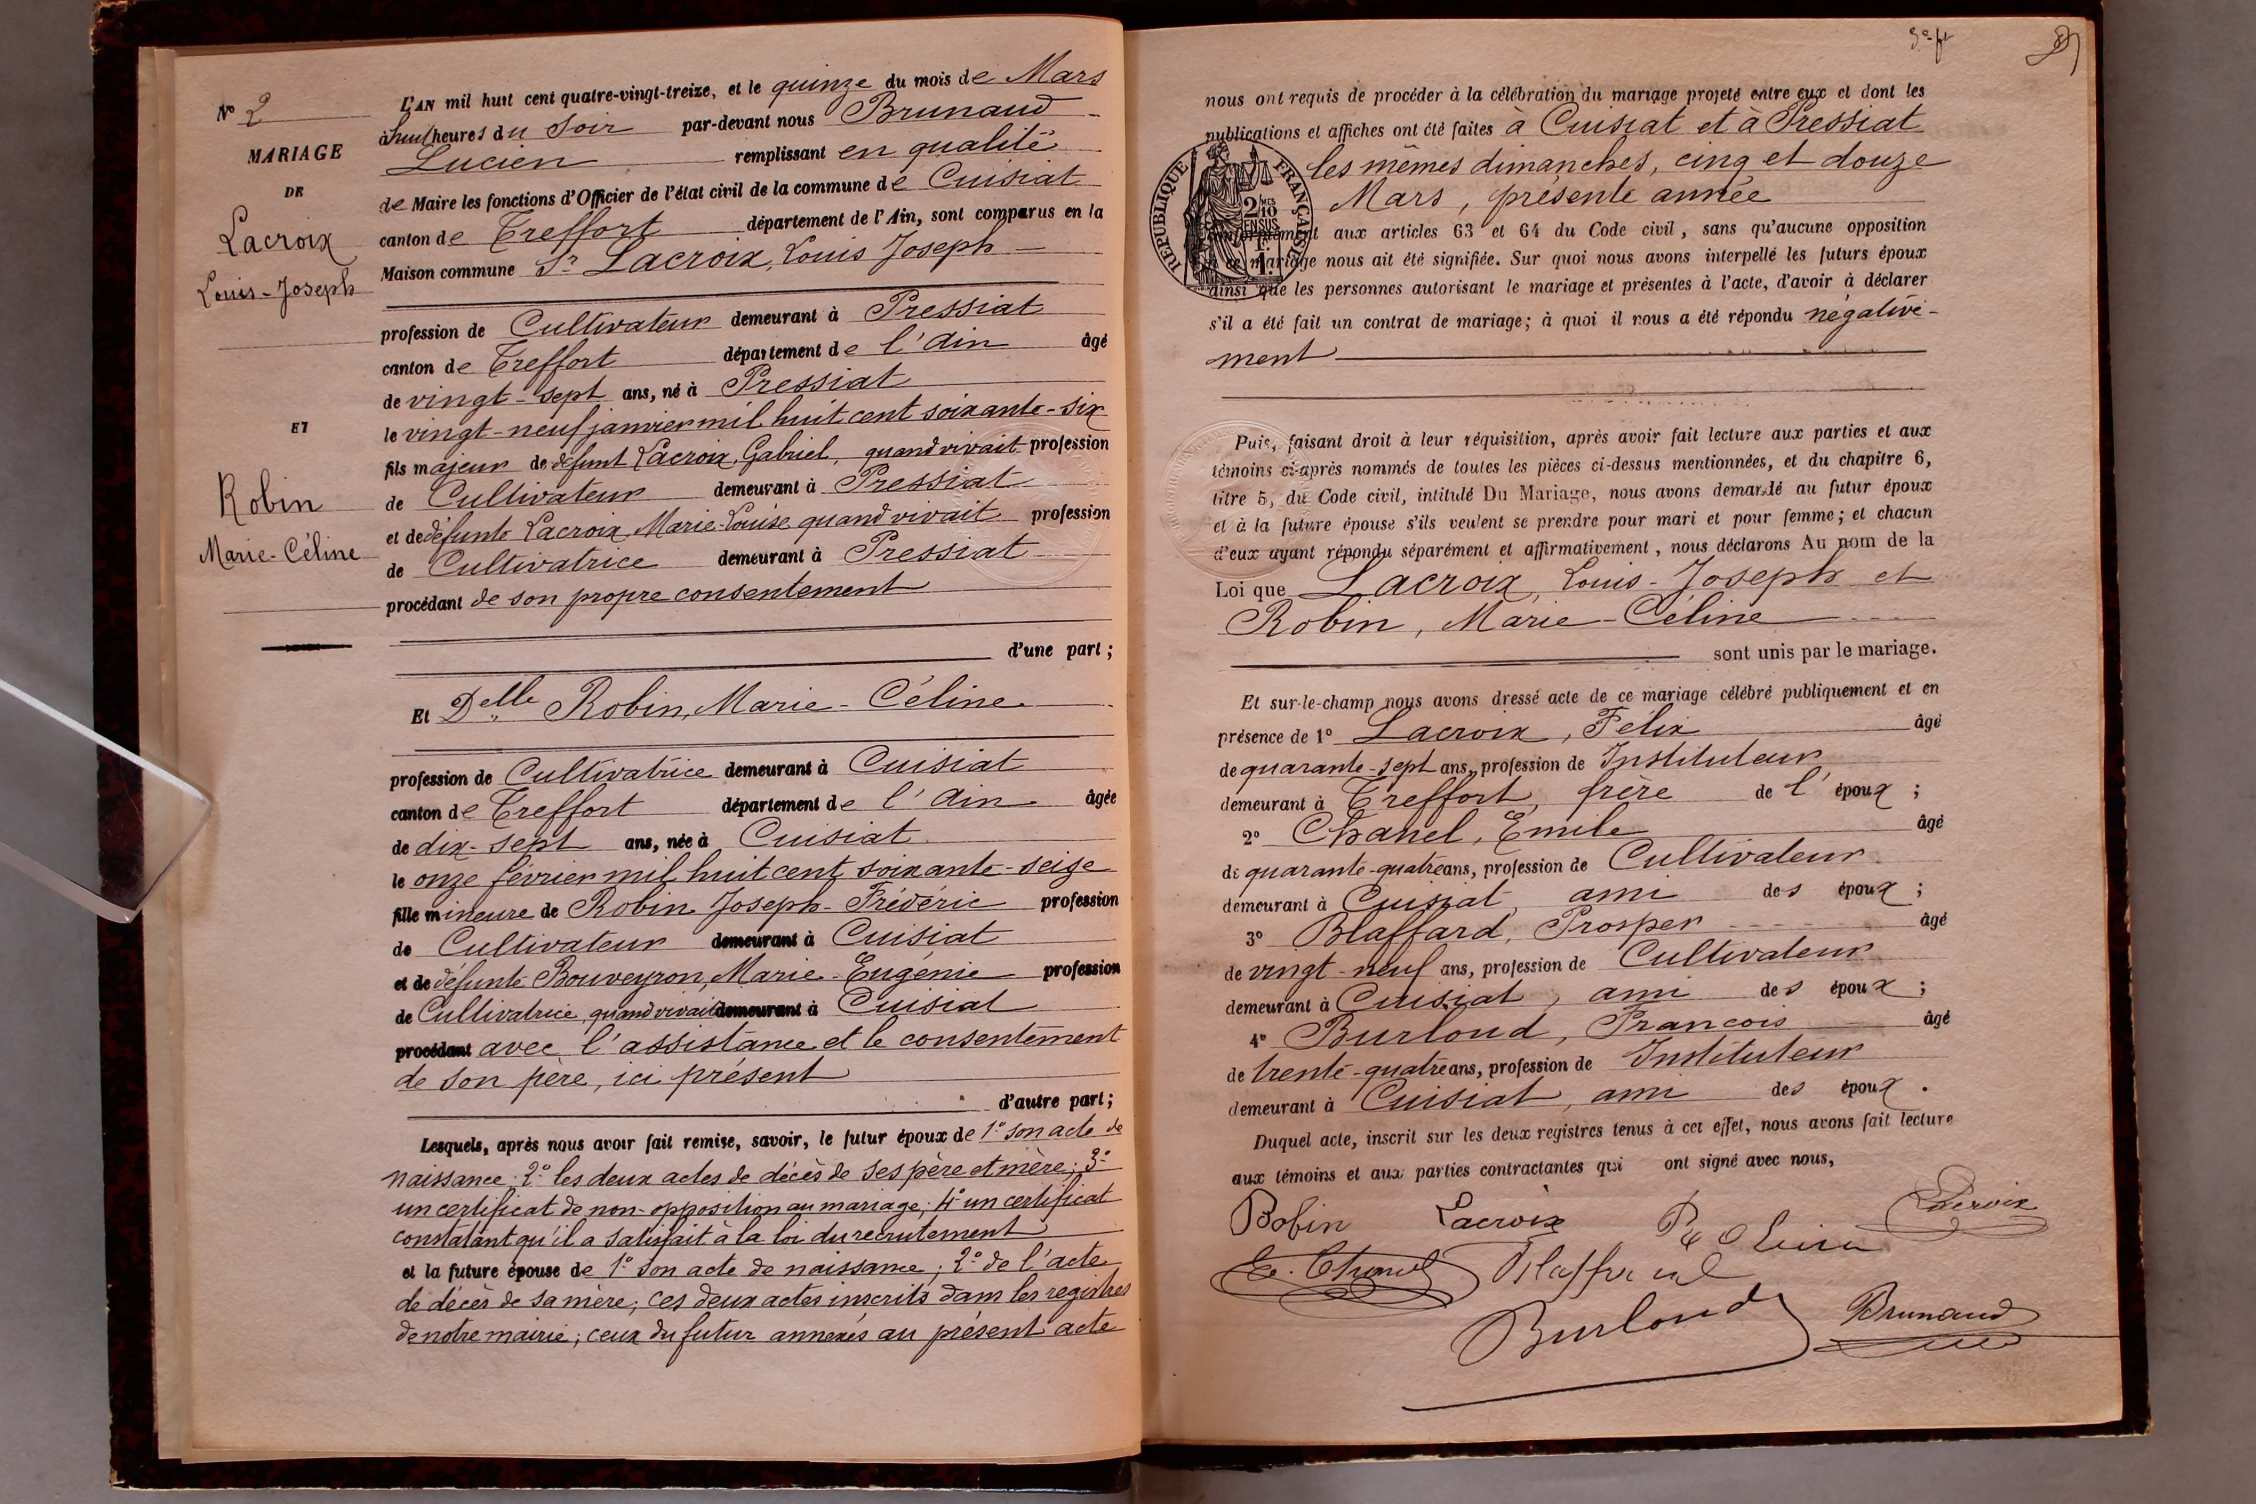 No 2
MARIAGE
DE
Lacroix
Louis-Joseph
ET
Robin
Marie-Céline
L'AN mil huit cent quatre-vingt-treize, et le quinze du mois de Mars
à huit heures du Soir par-devant nous Brunaud
Lucien remplissant en qualité
de Maire les fonctions d'Officier de l'état civil de la commune de Cuisiat
canton de Treffort département de l'Ain, sont comparus en la
Maison commune Sr Lacroix, Louis Joseph
profession de Cultivateur demeurant à Pressiat
canton de Treffort département de l'Ain âgé
de vingt-sept ans, né à Pressiat
le vingt-neuf janvier mil huit cent soixante-six
fils majeur de défunt Lacroix, Gabriel, quand vivait profession
de Cultivateur demeurant à Pressiat
et de défunte Lacroix, Marie-Louise quand vivait profession
de Cultivatrice demeurant à Pressiat
procédant de son propre consentement
d'une part ;
Et Delle Robin, Marie-Céline
profession de Cultivatrice demeurant à Cuisiat
canton de Treffort département de l'Ain âgée
de dix-sept ans, née à Cuisiat
le onze février mil huit cent soixante-seize
fille mineure de Robin Joseph-Frédéric profession
de Cultivateur demeurant à Cuisiat
et de défunte Bouveyron, Marie-Eugénie profession
de Cultivatrice, quand vivait demeurant à Cuisiat
procédant avec l'assistance et le consentement
de son père, ici présent
d'autre part ;
Lesquels, après nous avoir fait remise, savoir, le futur époux de 1° son acte de
naissance ; 2° les deux actes de décès de ses père et mère ; 3°
un certificat de non-opposition au mariage ; 4° un certificat
constatant qu'il a satisfait à la loi du recrutement
et la future épouse de 1° son acte de naissance ; 2° de l'acte
de décès de sa mère ; ces deux actes inscrits dans les registres
de notre mairie ; ceux du futur annexés au présent acte
nous ont requis de procéder à la célébration du mariage projeté entre eux et dont les
publications et affiches ont été faites à Cuisiat et à Pressiat
les mêmes dimanches, cinq et douze
Mars, présente année
RÉPUBLIQUE FRANÇAISE
2/10
EN SUS
conformément aux articles 63 et 64 du Code civil, sans qu'aucune opposition
à ce mariage nous ait été signifiée. Sur quoi nous avons interpellé les futurs époux
ainsi que les personnes autorisant le mariage et présentes à l'acte, d'avoir à déclarer
s'il a été fait un contrat de mariage ; à quoi il nous a été répondu négative-
ment
Puis, faisant droit à leur réquisition, après avoir fait lecture aux parties et aux
témoins ci-après nommés de toutes les pièces ci-dessus mentionnées, et du chapitre 6,
titre 5, du Code civil, intitulé Du Mariage, nous avons demandé au futur époux
et à la future épouse s'ils veulent se prendre pour mari et pour femme ; et chacun
d'eux ayant répondu séparément et affirmativement, nous déclarons Au nom de la
Loi que Lacroix, Louis-Joseph et
Robin, Marie-Céline
sont unis par le mariage.
Et sur-le-champ nous avons dressé acte de ce mariage célébré publiquement et en
présence de 1° Lacroix, Félix âgé
de quarante-sept ans, profession de Instituteur
demeurant à Treffort, frère de l'époux ;
2° Chanel, Emile âgé
de quarante-quatre ans, profession de Cultivateur
demeurant à Cuisiat, ami des époux ;
3° Blaffard, Prosper âgé
de vingt-neuf ans, profession de Cultivateur
demeurant à Cuisiat, ami des époux ;
4° Burloud, Francois âgé
de trente-quatre ans, profession de Instituteur
demeurant à Cuisiat, ami des époux.
Duquel acte, inscrit sur les deux registres tenus à cet effet, nous avons fait lecture
aux témoins et aux parties contractantes qui ont signé avec nous,
Robin Lacroix Lacroix
E. Chanel Blaffard
Burloud Brunaud